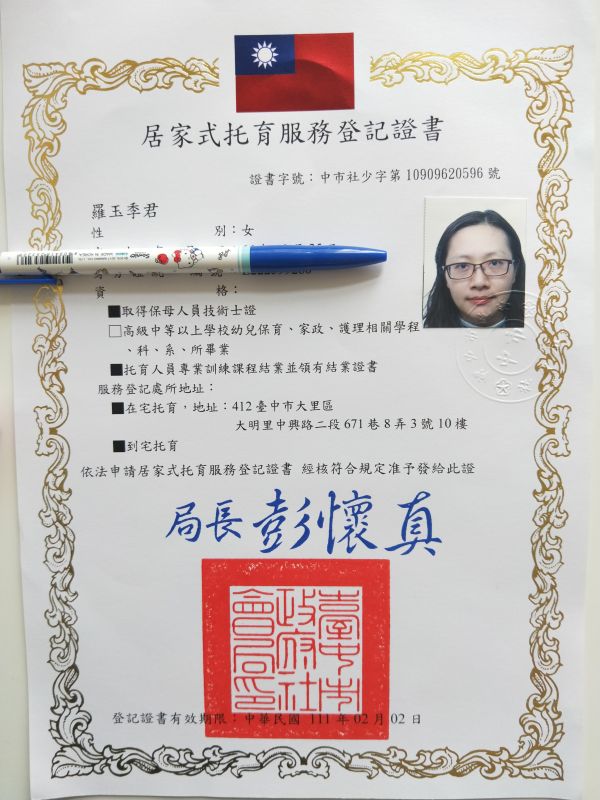 居家式托育服務登記證書
證書字號：中市社少字第 10909620596 號
羅玉季君
性別：女
資格：
■取得保母人員技術士證
□高級中等以上學校幼兒保育、家政、護理相關學程
、科、系、所畢業
■托育人員專業訓練課程結業並領有結業證書
服務登記處所地址：
■在宅托育，地址：412 臺中市大里區
大明里中興路二段 671 巷 8 弄 3 號 10 樓
■到宅托育
依法申請居家式托育服務登記證書 經核符合規定准予發給此證
局長彭懷真
臺中市政府社會局印
登記證書有效期限：中華民國 111 年 02 月 02 日